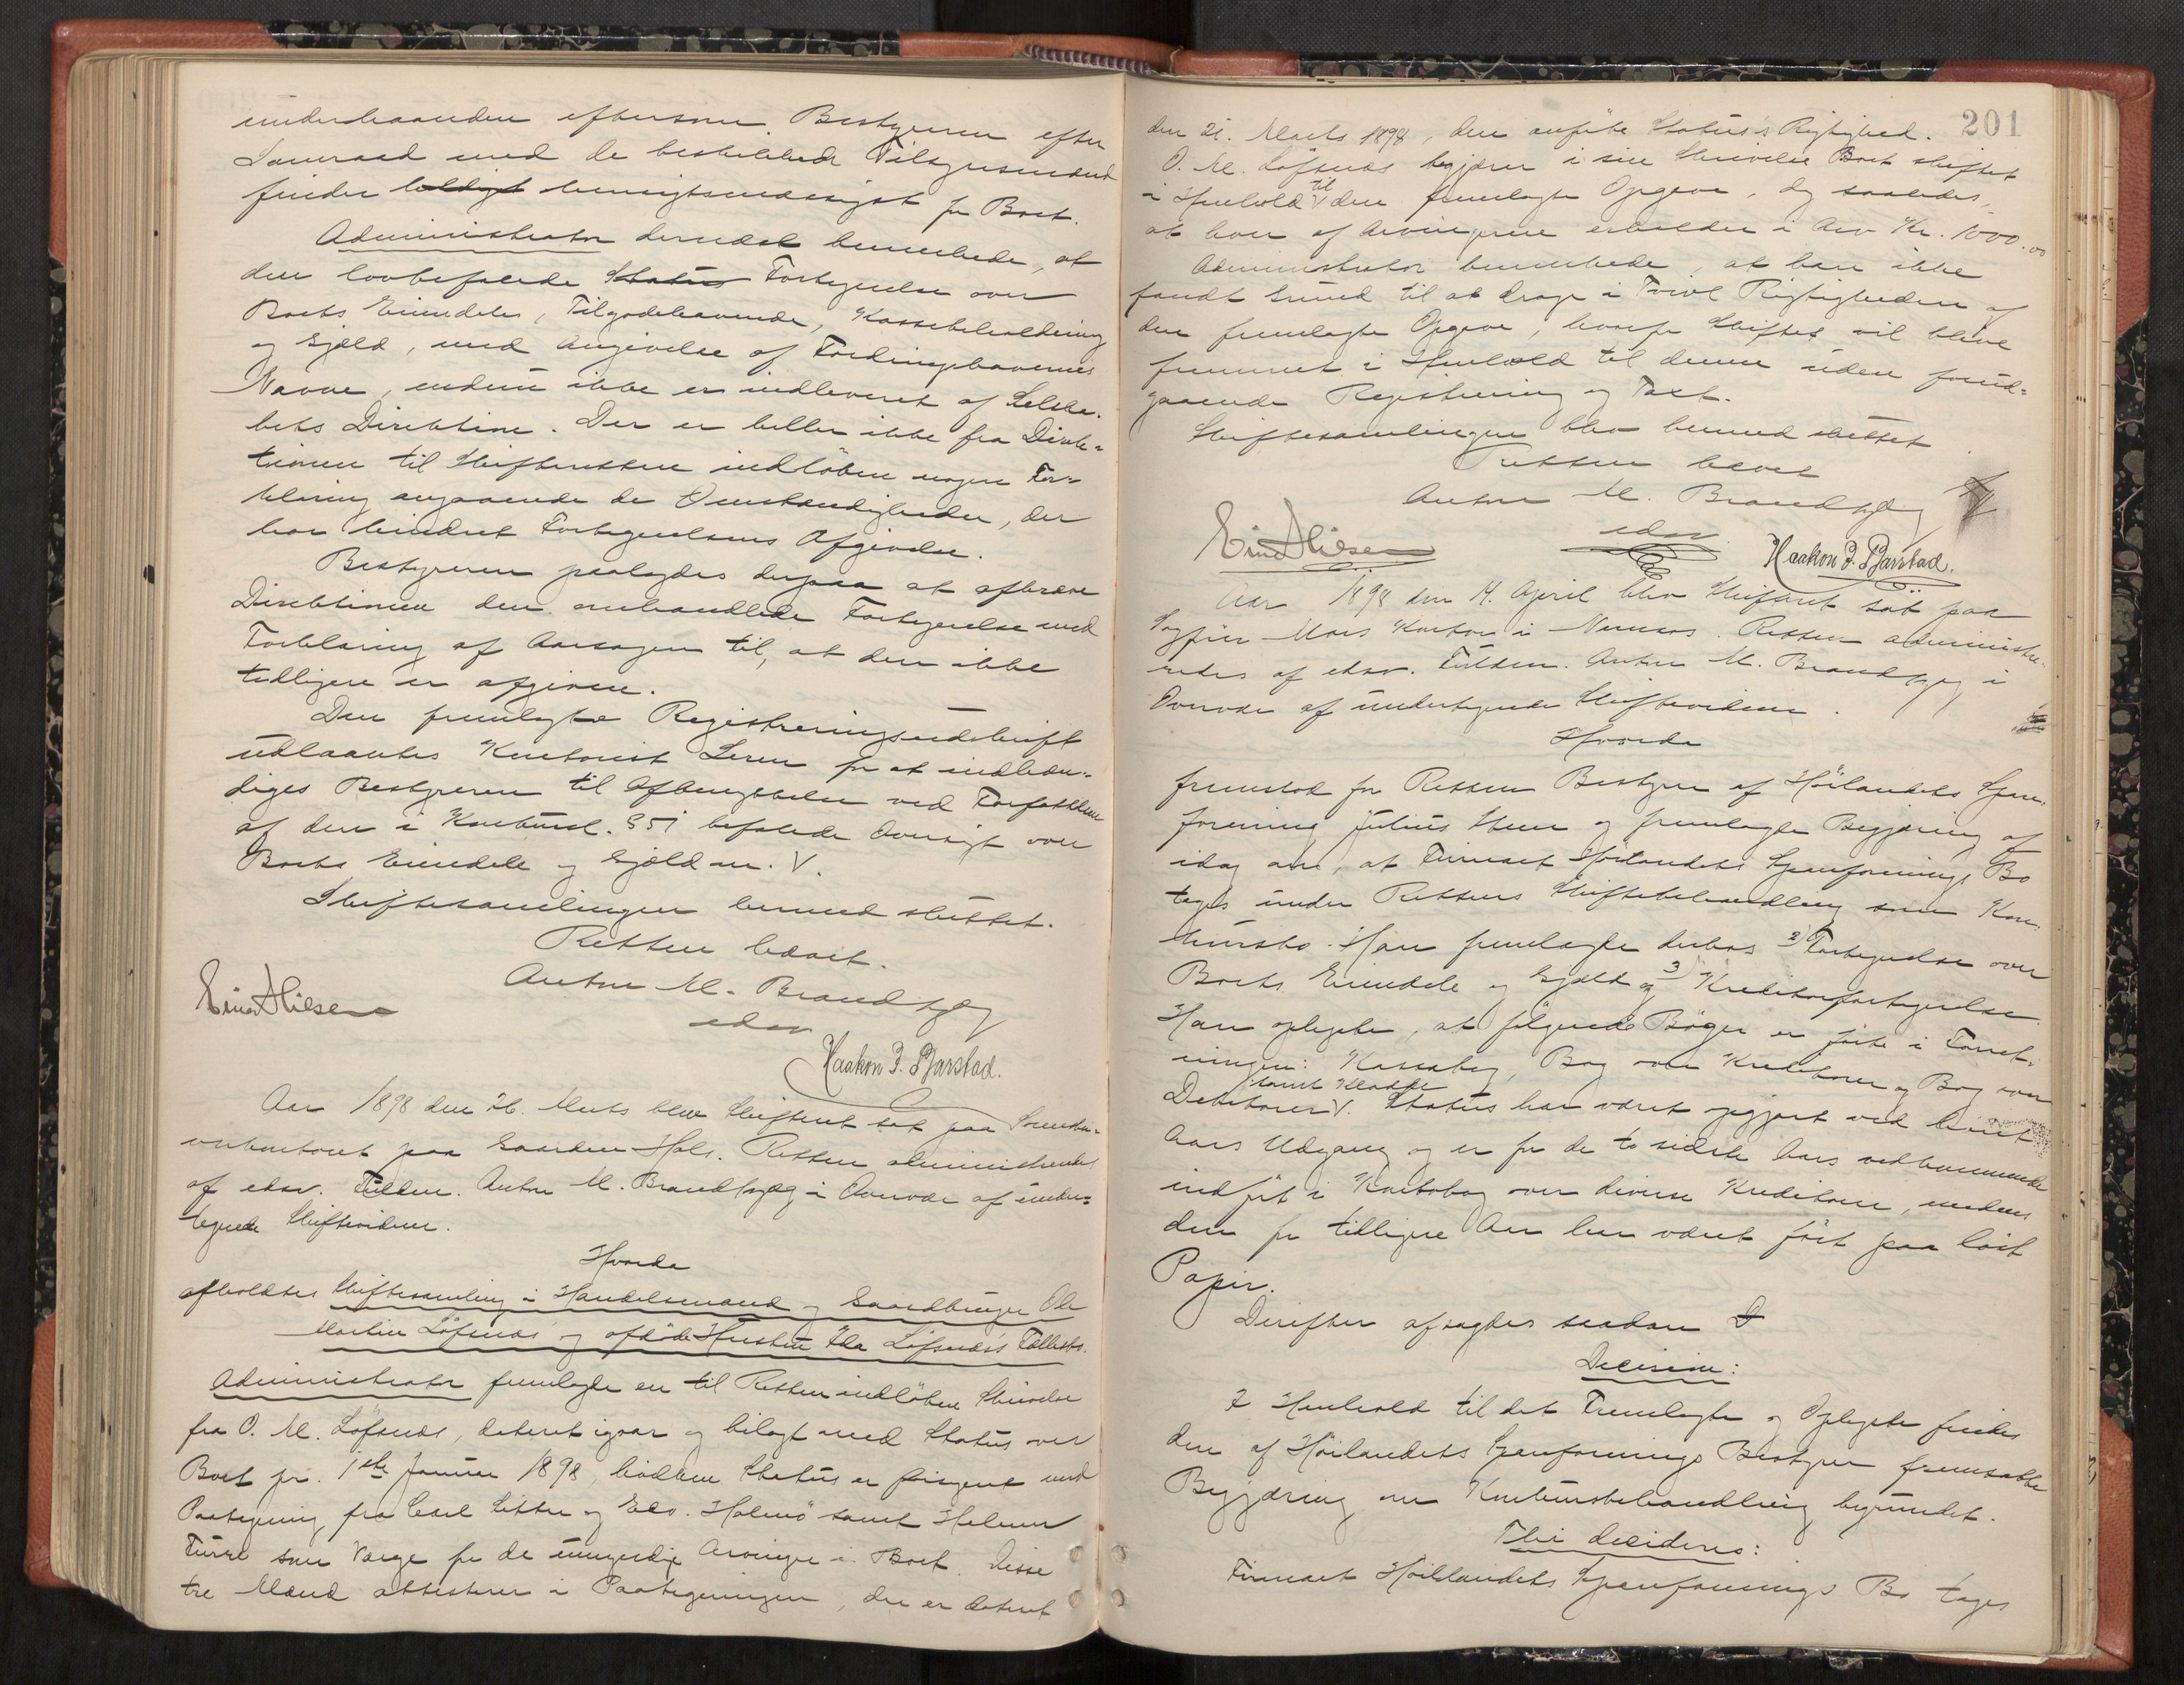 underhaanden eftersom Bestyreren efter
Samraad med de beskikkede Tilsynsmænd
finder heldigst hensigtsmæssigst for Boet.
Administrator dernæst bemerkede, at
den lovbefalede Status Fortegnelse over
Boets Eiendele, Tilgodehavende, Kassebeholdning
og Gjæld, med Angivelse af Fordringshavernes
Navne, endnu ikke er indleveret af Selska-
bets Direktion. Der er heller ikke fra Direk-
tionen til Skifteretten indløben nogen For-
klaring angaaende de Omstændigheder, der
har hindret Fortegnelsens Afgivelse.
Bestyreren paalagdes derpaa at afkræve
Direktionen den omhandlede Fortegnelse med
Forklaring af Aarsagen til, at den ikke
tidligere er afgiven.
Den fremlagte Registreringsudskrift
udlaantes Kontorist Seem for at indhæn-
diges Bestyreren til Afbenyttelse ved Forfattelsen
af den i Konkursl. § 51 befalede Oversigt over
Boets Eiendele og Gjæld m. V.
Skiftesamlingen hermed sluttet.
Retten hævet.
Anton M. Brandtzæg
edsv
Einar Nilsen
Haakon J. Bjarstad.
Aar 1898 den 26. Marts blev Skifteret sat paa Sorenskri-
verkontoret paa Gaarden Hals. Retten administreredes
af edsv. Fuldm. Anton M. Brandtzæg i Overvær af under-
tegnede Skiftevidner.
Hvorda
afholdtes Skiftesamling i Handelsmand og Gaardbruger Ole
Martin Løfsnæs' og afdøde Hustru Ida Løfsnæs's Fællesbo.
Administrator fremlagde en til Retten indløben Skrivelse
fra O. M. Løfsnæs, dateret igaar og bilagt med Status over
Boet pr. 1ste Januar 1898, hvilken Status er forsynet med
Paategning fra Carl Sitter og Edv. Holmø samt Helmer
Furre som Værge for de umyndige Arvinger i Boet. Disse
tre Mænd attesterer i Paategningen, der er dateret
201
den 21. Marts 1898, den anførte Status's Rigtighed.
O. M. Løfsnæs begjærer i sin Skrivelse Boet skiftet
i Henhold til den fremlagte Opgave, og saaledes,
at hver af Arvingerne erholder i Arv Kr. 1000.00
Administrator bemerkede, at han ikke
fandt Grund til at drage i Tvivl Rigtigheden af
den fremlagte Opgave, hvorfor Skiftet vil blive
fremmet i Henhold til denne uden forud-
gaaende Registrering og Taxt.
Skiftesamlingen blev hermed sluttet
Retten hævet
Anton M. Brandtzæg
edsv.
Einar Nilsen
Haakon J. Bjarstad.
Aar 1898 den 14. April blev Skifteret sat paa
Sagfører Moes Kontor i Namsos. Retten administre-
redes af edsv. Fuldm. Anton M. Brandtzæg i
Overvær af undertegnede Skiftevidner.
Hvorda
fremstod for Retten Bestyrer af Høilandets Spare-
forening Julius Hem og fremlagde Begjæring af
idag om, at Firmaet Høilandets Spareforenings Bo
tages under Rettens Skiftebehandling som Kon-
kursbo. Han fremlagde derhos 2) Fortegnelse over
Boets Eiendele og Gjæld og 3) Kreditorfortegnelse.
Han oplyste, at følgende Bøger er førte i Forret-
ningen: Kassabog, Bog over Kreditorer og Bog over
Debitorer samt Kladde. Status har været opgjort ved hvert
Aars Udgang og er for de to sidste Aars vedkommende
indført i Kontobog over diverse Kreditorer, medens
den for tidligere Aar har været ført paa løst
Papir.
Derefter afsagdes saadan
Decision:
I Henhold til det Fremlagte og Oplyste findes
den af Høilandets Spareforenings Bestyrer fremsatte
Begjæring om Konkursbehandling begrundet.
Thi decideres:
Firmaet Høilandets Spareforenings Bo tages